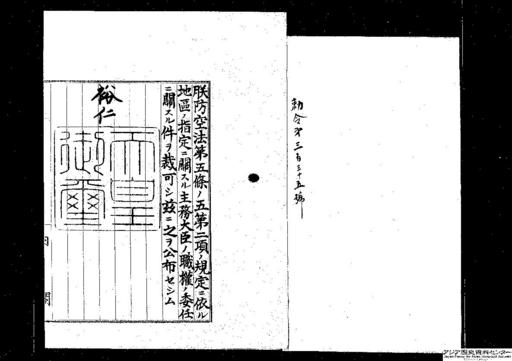 勅令第三百三十五號
朕防空法第五條ノ五第二項ノ規定ニ依ル
地區ノ指定ニ關スル主務大臣ノ職權ノ委任
ニ關スル件ヲ裁可シ茲ニ之ヲ公布セシム
裕仁
天皇
御璽
内閣
アジア歴史資料センター
Japan Center for Asian Historical Records